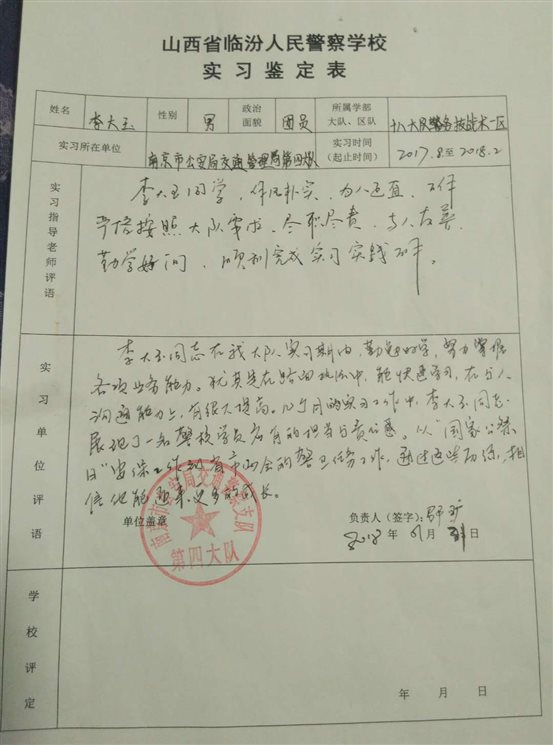 山西省临汾人民警察学校
实习鉴定表
姓名 李大玉 性别 男 政治面貌 团员 所属学部大队、区队 十八大队警务技战术一区
实习所在单位 南京市公安局交通管理局第四大队 实习时间(起止时间) 2017.8至2018.2
实习指导老师评语
李大玉同学,作风朴实,为人正直,工作
严格按照大队要求,尽职尽责,与人友善,
勤学好问,顺利完成实习实践工作。
实习单位评语
李大玉同志在我大队实习期间,勤勉好学,努力掌握
各项业务能力。尤其是在路面执勤中,能快速学习,在与人
沟通能力上,有很大提高。几个月的实习工作中,李大玉同志
展现了一名警校学员应有的担当与责任感。从“国家公祭
日”安保工作到省市两会的警卫任务工作,通过这些历练,相
信他能迎来更多的成长。
单位盖章
负责人(签字):
2018年01月31日
南京市公安局交通管理支队
第四大队
学校评定
年 月 日